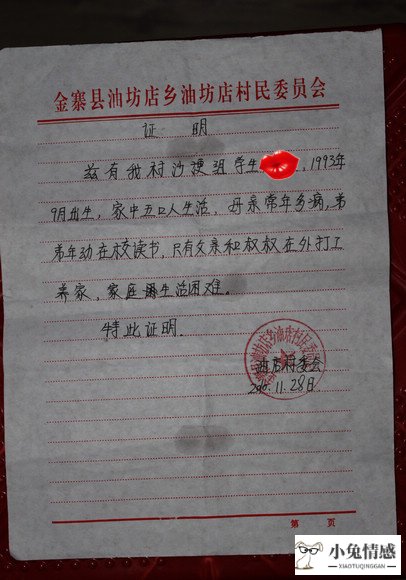 金寨县油坊店乡油坊店村民委员会
证 明
兹有我村沙埂组学生 ，1993年
9月出生，家中五口人生活，母亲常年多病，弟
弟年幼在校读书，只有父亲和叔叔在外打工
养家，家庭 生活困难。
特此证明.
油店村委会
11.28日
第 页
小兔情感
XIAOTUQINGGAN